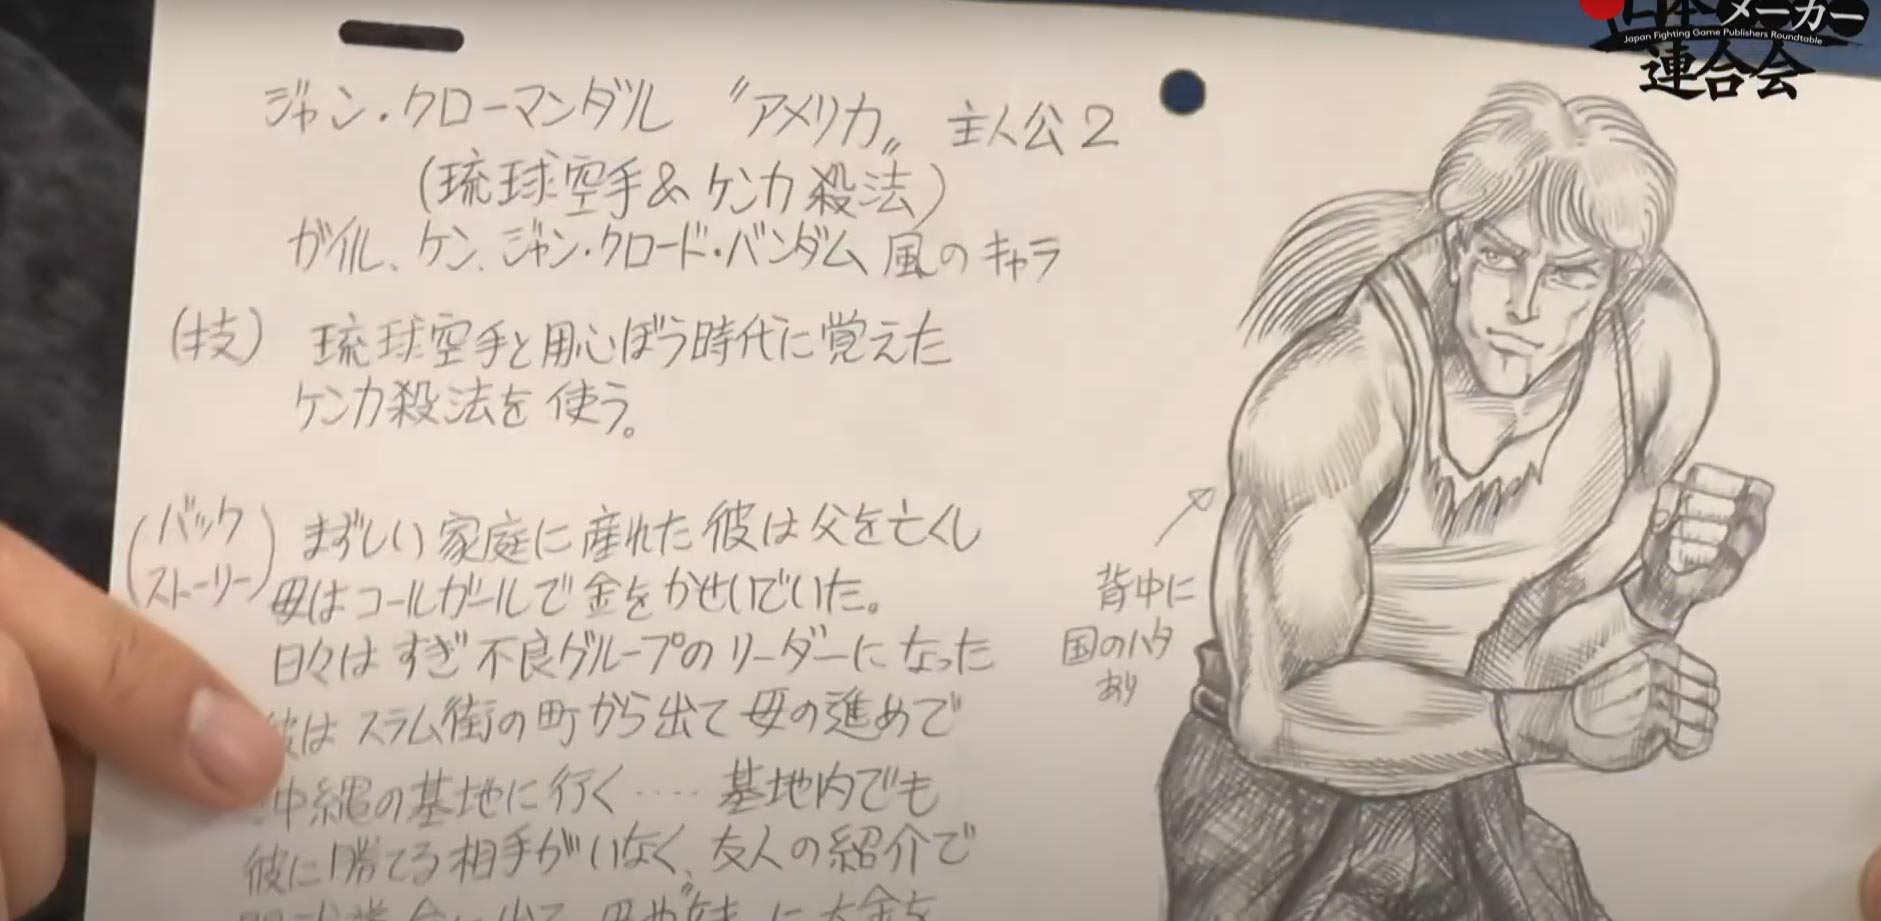 ジャン・クローマンダル 〝アメリカ〟 主人公2
(琉球空手&ケンカ殺法)
ガイル、ケン、ジャン・クロード・バンダム風のキャラ
(技) 琉球空手と用心ぼう時代に覚えた
ケンカ殺法を使う。
(バックストーリー) まずしい家庭に産れた彼は父を亡くし
母はコールガールで金をかせいでいた。
日々はすぎ不良グループのリーダーになった
彼はスラム街の町から出て母の進めで
沖縄の基地に行く‥‥基地内でも
彼に勝てる相手がいなく、友人の紹介で
に大金を
背中に
国のハタ
あり
メーカー
Japan Fighting Game Publishers Roundtable
連合会